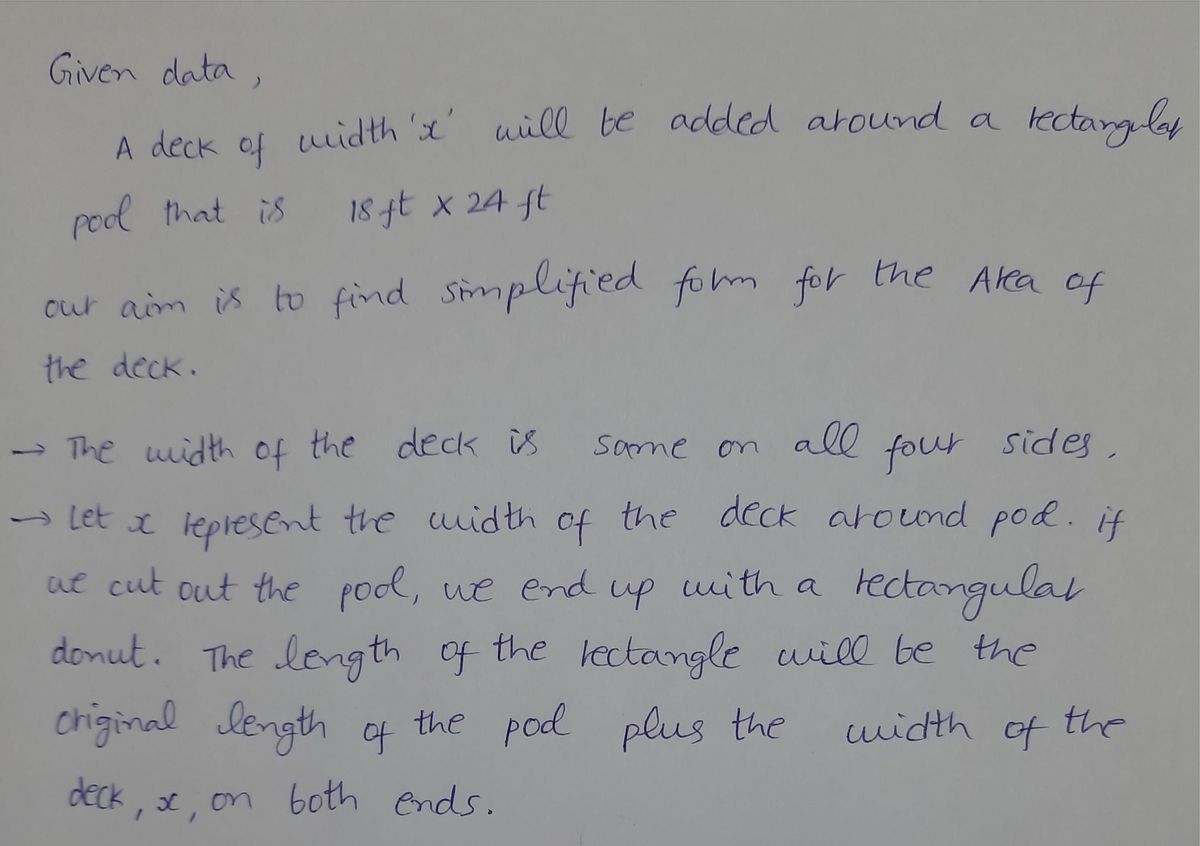 Given data,
A deck of width 'x' will be added around a rectangular
pool that is 18 ft x 24 ft
our aim is to find simplified form for the Area of
the deck.
→ The width of the deck is same on all four sides.
→ Let x represent the width of the deck around pool. if
we cut out the pool, we end up with a rectangular
donut. The length of the rectangle will be the
original length of the pool plus the width of the
deck, x, on both ends.